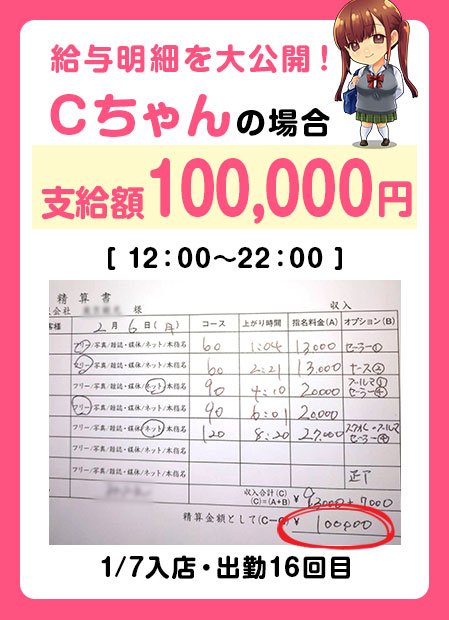 給与明細を大公開！
Cちゃんの場合
支給額100,000円
[ 12：00〜22：00 ]
精算書
会社 様 収入
客様 2月6日(月) コース 上がり時間 指名料金(A) オプション(B)
フリー/写真/雑誌・媒体/ネット/本指名 60 1:04 13,000 セーラー①
フリー/写真/雑誌・媒体/ネット/本指名 60 2:21 13,000 ナース②
フリー/写真/雑誌・媒体/ネット/本指名 90 4:10 20,000 セーラー④
フリー/写真/雑誌・媒体/ネット/本指名 90 6:01 20,000
フリー/写真/雑誌・媒体/ネット/本指名 120 8:20 27,000 セーラー④
フリー/写真/雑誌・媒体/ネット/本指名
フリー/写真/雑誌・媒体/ネット/本指名
収入合計(C)
(C)=(A+B) ¥ 93000+7000
精算金額として(C- ¥ 100,000
1/7入店・出勤16回目